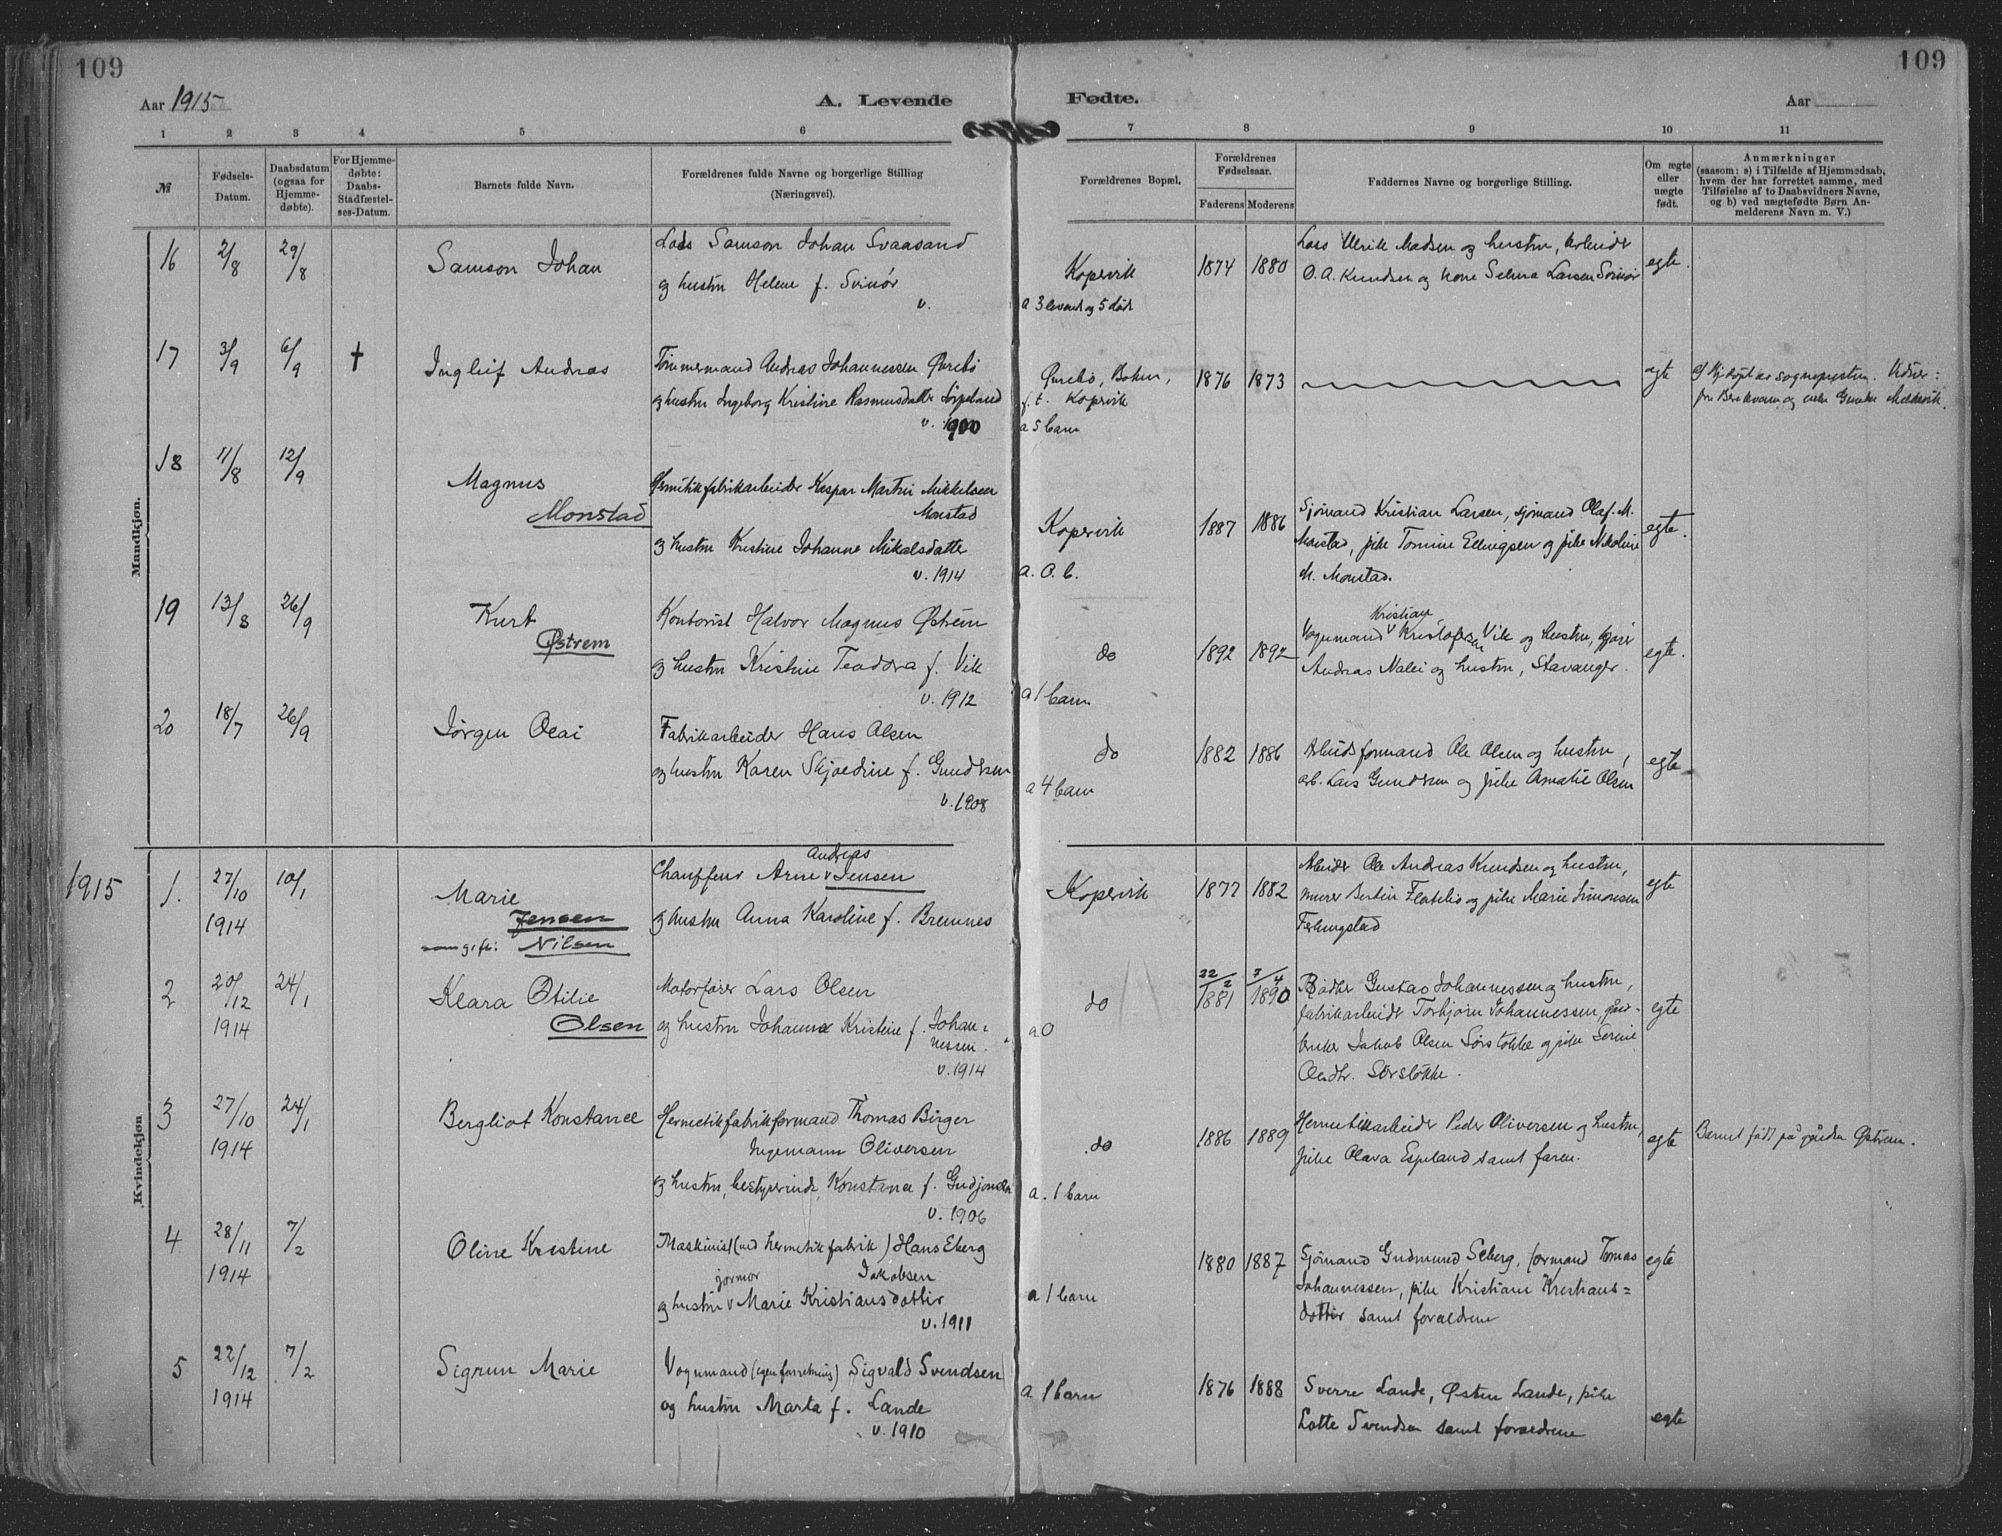 109
109
Aar 1915
A. Levende
Fødte.
Aar
1 2 3 4 5 6 7 8 9 10 11
№
Fødsels-
Datum.
Daabsdatum
(ogsaa for
Hjemme-
døbte).
For Hjemme-
døbte:
Daabs-
Stadfæstel-
ses-Datum.
Barnets fulde Navn.
Forældrenes fulde Navne og borgerlige Stilling
(Næringsvei).
Forældrenes Bopæl.
Forældrenes
Fødselsaar.
Faderens Moderens
Faddernes Navne og borgerlige Stilling.
Om ægte
eller
uægte
født.
Anmærkninger
(saasom: a) i Tilfælde af Hjemmedaab,
hvem der har forrettet samme, med
Tilføielse af to Daabsvidners Navne,
og b) ved uægtefødte Børn An-
melderens Navn m. V.)
Mandkjøn.
16 2/8 29/8 Samson Johan
Lods Samson Johan Svaasand
og hustru Helene f. Svinør
v.
Kopervik
a 3 levende og 5 døde
1874 1880
Lars Ulrik Madsen og hustru, arbeider
O. A. Knudsen og kone Selma Larsen Svinør
egte.
17 3/9 6/9 † Ingleif Andreas
Tømmermand Andreas Johannessen Øvrebø
og hustru Ingeborg Kristine Rasmusdatter Sørpeland
v. 1900
Øvrebø, Boken,
f. t. Kopervik
a 5 barn
1876 1873
egte
af sognepresten. Vidner:
fru og Møksvik.
18 11/8 12/9 Magnus
Monstad
Hermetikfabrikarbeider Kaspar Martin Mikkelsen
Monstad
og hustru Kristine Johanne Mikalsdatter
v. 1914
Kopervik
a. 0. b.
1887 1886
Sjømand Kristian Larsen, sjømand Olaf. M.
Monstad, pike Tomine Ellingsen og pike Nikoline
M. Monstad.
egte.
19 13/8 26/9 Kurt
Østrem
Kontorist Halvor Magnus Østrem
og hustru Kristine Teodora f. Vik
v. 1912
do
a 1 barn
1892 1892
Kristian
Vognmand v Kristofersen Vik og hustru, kjører
Andreas Nalei og hustru, Stavanger.
egte.
20 18/7 26/9 Jørgen Olai
Fabrikarbeider Hans Olsen
og hustru Karen Skjoldine f. Gundersen
v. 1908
do
a 4 barn
1882 1886
Arbeidsformand Ole Olsen og hustru,
arb. Lars Gundersen og pike Amalie Olsen
egte
Kvindekjøn
1915
1. 27/10 1914 10/1 Marie
Jensen
som gift: Nilsen
Andreas
Chauffeur Arne v Jensen
og hustru Anna Karoline f. Bremnes
Kopervik
1877 1882
Arbeider Ole Andreas Knudsen og hustru,
murer Bertin Flotelio og pike Marie Simonsen
Ferkingstad
egte
2 20/12 1914 24/1 Klara Otilie
Olsen
Motorfører Lars Olsen
og hustru Johanna Kristine f. Johan=
nessen.
v. 1914
do
a. 0
22/2 1881 7/4 1890
Bødker Gustav Johannessen og hustru,
fabrikarbeider Torbjørn Johannessen, gård-
bruker Jakob Olsen Sørstokke og pike Serine
Olsdtr. Sørstokke.
egte
3 27/10 1914 24/1 Bergliot Konstance
Hermetikfabrikformand Thomas Birger
Ingemann Oliversen
og hustru, bestyrerinde, Konstance f. Gudjonsen
v. 1906
do
a. 1 barn
1886 1889
Hermetikarbeider Peder Oliversen og hustru,
pike Olava Espeland samt faren.
egte
Barnet født på gården Østrem.
4 28/11 1914 7/2 Oline Kristine
Maskinist (ved hermetikfabrik) Hans Eberg
jormor Jakobsen
og hustru v Marie Kristiansdotter
v. 1911
a 1 barn
1880 1887
Sjømand Gudmund Seberg, formand Tomas
Johannessen, pike Kristiane Kristians=
dotter samt forældrene
egte
5 22/12 1914 7/2 Sigrun Marie
Vognmand (egen forretning) Sigvald Svendsen
og hustru Marta f. Lande
v. 1910
a 1 barn
1876 1888
Sverre Lande, Østen Lande, pike
Lotte Svendsen samt forældrene
egte